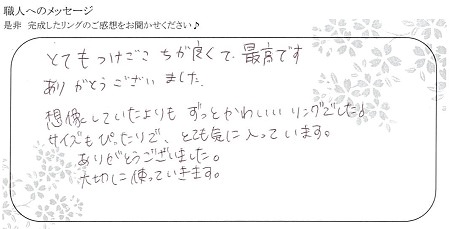 職人へのメッセージ
是非 完成したリングのご感想をお聞かせください♪
とてもつけごこちが良くて、最高です
ありがとうございました。
想像していたよりもずっとかわいいリングでした!
サイズもぴったりで、とても気に入っています。
ありがとうございました。
大切に使っていきます。